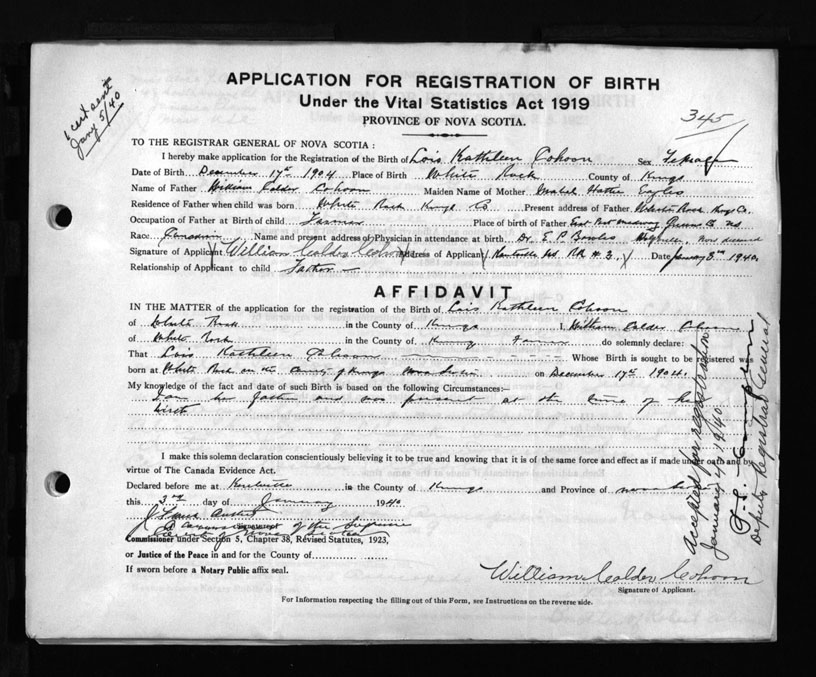 1 cert sent
Jany 5/40
APPLICATION FOR REGISTRATION OF BIRTH
Under the Vital Statistics Act 1919
PROVINCE OF NOVA SCOTIA.
345
TO THE REGISTRAR GENERAL OF NOVA SCOTIA :
I hereby make application for the Registration of the Birth of Lois Kathleen Cohoon Sex Female
Date of Birth December 17th 1904 Place of Birth White Rock County of Kings
Name of Father William Calder Cohoon Maiden Name of Mother Hattie Eagles
Residence of Father when child was born White Rock Kings Co Present address of Father White Rock Kings Co.
Occupation of Father at Birth of child Farmer Place of Birth of Father East Port Medway Queens Co NS
Race Canadian Name and present address of Physician in attendance at birth Dr. E P Bowles now deceased
Signature of Applicant William Calder Cohoon Address of Applicant Kentville NS. RR # 3. Date January 3rd 1940.
Relationship of Applicant to child Father
AFFIDAVIT
IN THE MATTER of the application for the registration of the Birth of Lois Kathleen Cohoon
of White Rock in the County of Kings I, William Calder Cohoon
of White Rock in the County of Kings Farmer do solemnly declare:
That Lois Kathleen Cohoon Whose Birth is sought to be registered was
born at White Rock in the County of Kings Nova Scotia on December 17th 1904.
My knowledge of the fact and date of such Birth is based on the following Circumstances:—
I am her father and was present at the time of her
birth
I make this solemn declaration conscientiously believing it to be true and knowing that it is of the same force and effect as if made under oath and by
virtue of The Canada Evidence Act.
Declared before me at Kentville in the County of Kings and Province of Nova Scotia
this 3rd day of January 1940
A Commissioner of the Supreme
Court of Nova Scotia
Commissioner under Section 5, Chapter 38, Revised Statutes, 1923,
or Justice of the Peace in and for the County of
If sworn before a Notary Public affix seal.
William Calder Cohoon
Signature of Applicant.
For Information respecting the filling out of this Form, see Instructions on the reverse side.
Accepted for registration
January 4th 1940
Deputy Registrar General